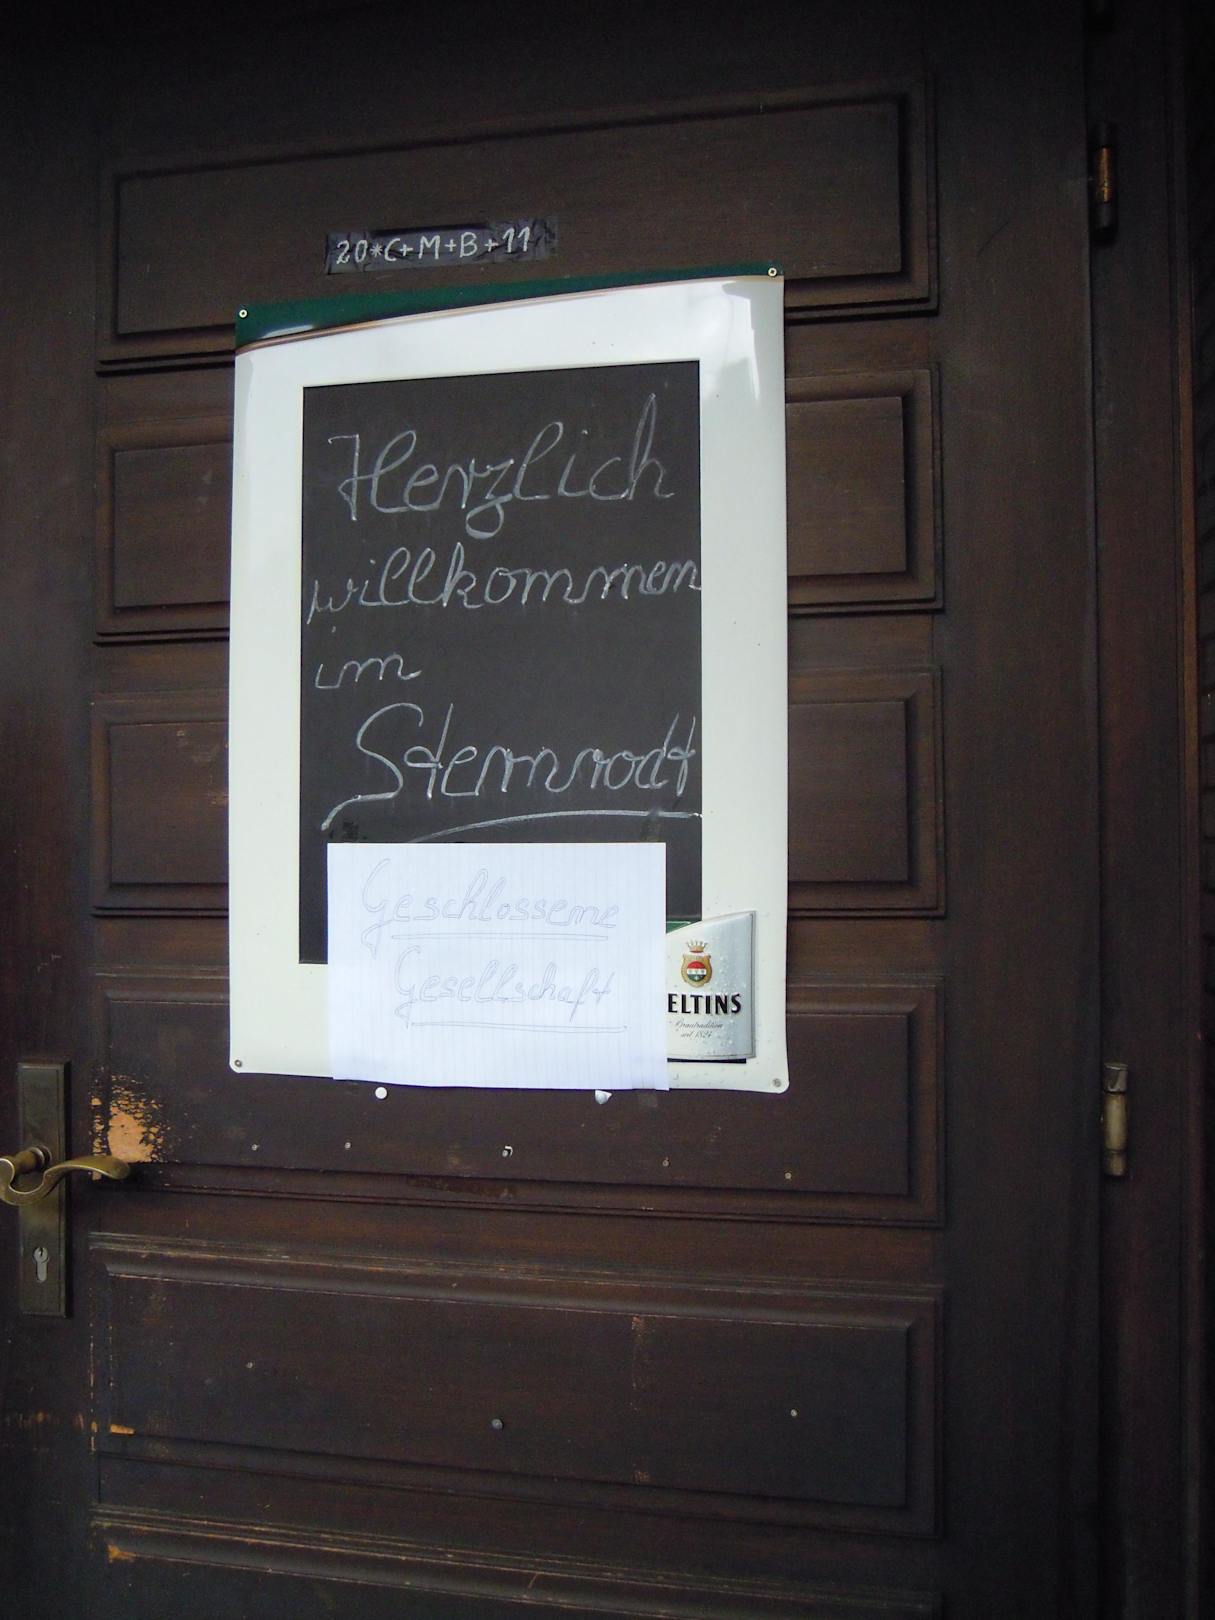 20*C+M+B+11
Herzlich
willkommen
im
Sternrodt
Geschlossene
Gesellschaft
ELTINS
Brautradition
seit 1824